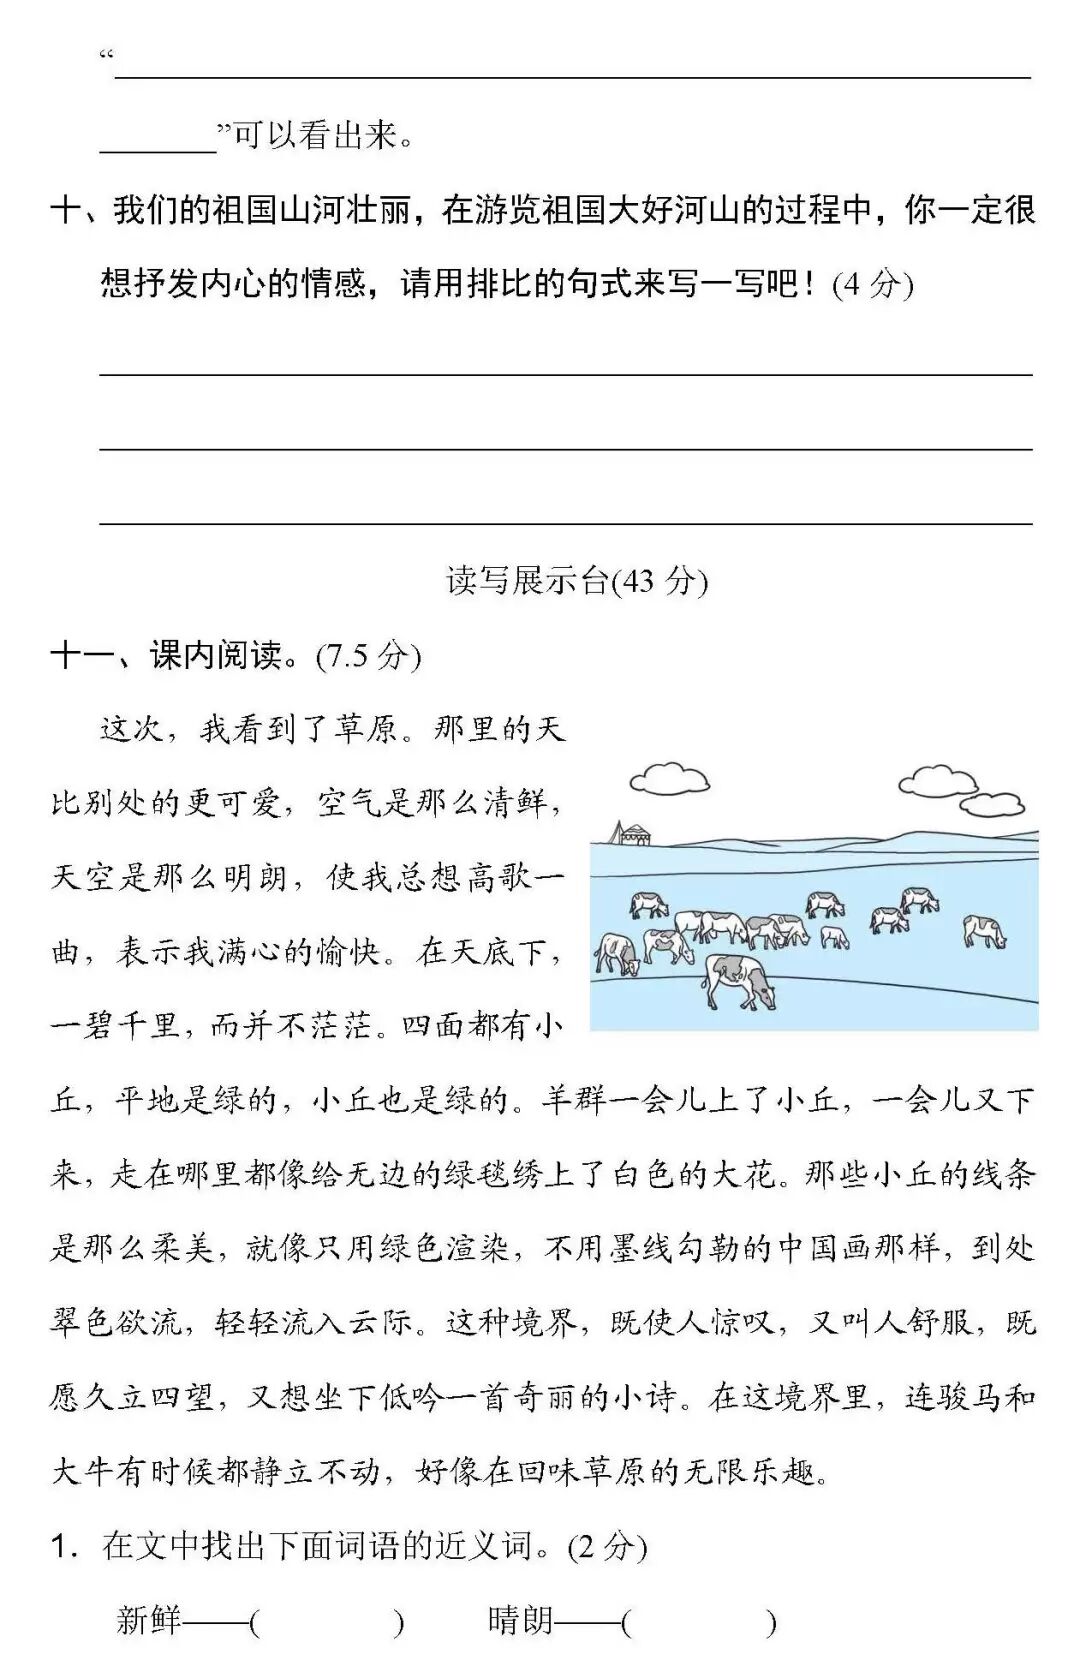 “
”可以看出来。
十、我们的祖国山河壮丽，在游览祖国大好河山的过程中，你一定很
想抒发内心的情感，请用排比的句式来写一写吧！(4 分)
读写展示台(43 分)
十一、课内阅读。(7.5 分)
这次，我看到了草原。那里的天
比别处的更可爱，空气是那么清鲜，
天空是那么明朗，使我总想高歌一
曲，表示我满心的愉快。在天底下，
一碧千里，而并不茫茫。四面都有小
丘，平地是绿的，小丘也是绿的。羊群一会儿上了小丘，一会儿又下
来，走在哪里都像给无边的绿毯绣上了白色的大花。那些小丘的线条
是那么柔美，就像只用绿色渲染，不用墨线勾勒的中国画那样，到处
翠色欲流，轻轻流入云际。这种境界，既使人惊叹，又叫人舒服，既
愿久立四望，又想坐下低吟一首奇丽的小诗。在这境界里，连骏马和
大牛有时候都静立不动，好像在回味草原的无限乐趣。
1．在文中找出下面词语的近义词。(2 分)
新鲜——(　　　　) 晴朗——(　　　　)